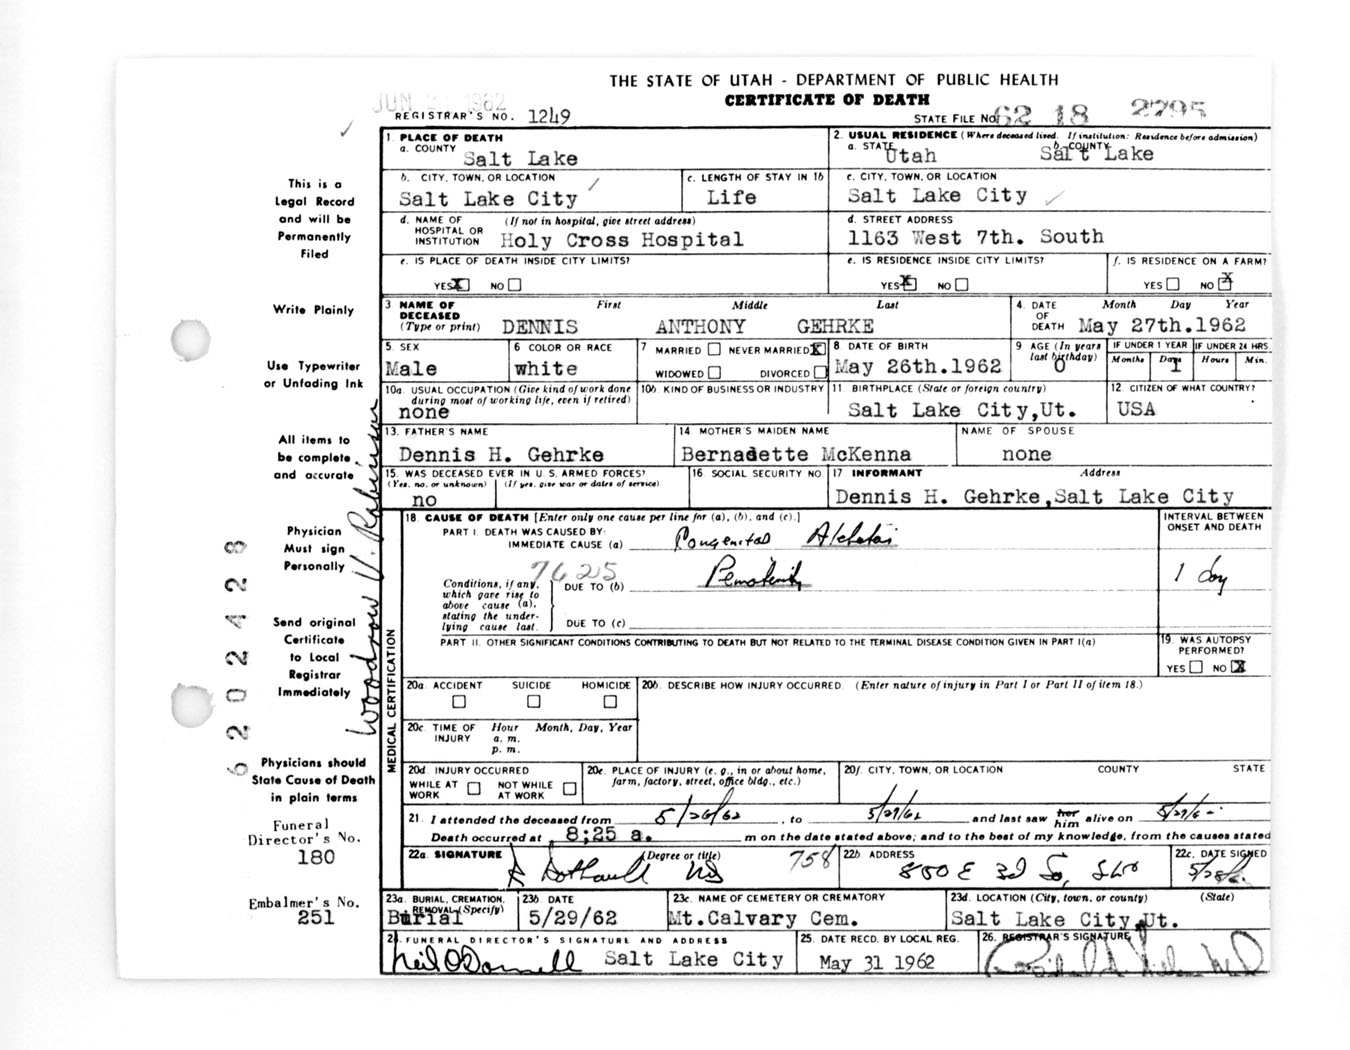 THE STATE OF UTAH - DEPARTMENT OF PUBLIC HEALTH
CERTIFICATE OF DEATH
JUN 1962
REGISTRAR'S NO. 1249
STATE FILE NO. 62 18 2795
This is a
Legal Record
and will be
Permanently
Filed
Write Plainly
Use Typewriter
or Unfading Ink
All items to
be complete
and accurate
Physician
Must sign
Personally
Send original
Certificate
to Local
Registrar
Immediately
Physicians should
State Cause of Death
in plain terms
Funeral
Director's No.
180
Embalmer's No.
251
Woodrow V. Robinson
1. PLACE OF DEATH
a. COUNTY Salt Lake
2. USUAL RESIDENCE (Where deceased lived. If institution: Residence before admission)
a. STATE Utah b. COUNTY Salt Lake
b. CITY, TOWN, OR LOCATION Salt Lake City
c. LENGTH OF STAY IN 1b Life
c. CITY, TOWN, OR LOCATION Salt Lake City
d. NAME OF HOSPITAL OR INSTITUTION (If not in hospital, give street address) Holy Cross Hospital
d. STREET ADDRESS 1163 West 7th. South
e. IS PLACE OF DEATH INSIDE CITY LIMITS?
YES X NO
e. IS RESIDENCE INSIDE CITY LIMITS?
YES X NO
f. IS RESIDENCE ON A FARM?
YES NO X
3 NAME OF DECEASED (Type or print) First Middle Last
DENNIS ANTHONY GEHRKE
4. DATE OF DEATH Month Day Year
May 27th.1962
5. SEX Male
6 COLOR OR RACE white
7 MARRIED NEVER MARRIED X
WIDOWED DIVORCED
8 DATE OF BIRTH May 26th.1962
9 AGE (In years last birthday) 0
IF UNDER 1 YEAR Months Days 1
IF UNDER 24 HRS. Hours Min.
10a. USUAL OCCUPATION (Give kind of work done during most of working life, even if retired)
none
10b. KIND OF BUSINESS OR INDUSTRY
11 BIRTHPLACE (State or foreign country)
Salt Lake City,Ut.
12. CITIZEN OF WHAT COUNTRY?
USA
13. FATHER'S NAME
Dennis H. Gehrke
14. MOTHER'S MAIDEN NAME
Bernadette McKenna
NAME OF SPOUSE
none
15. WAS DECEASED EVER IN U. S. ARMED FORCES?
(Yes, no, or unknown) (If yes, give war or dates of service)
no
16 SOCIAL SECURITY NO.
17 INFORMANT Address
Dennis H. Gehrke,Salt Lake City
MEDICAL CERTIFICATION
18. CAUSE OF DEATH [Enter only one cause per line for (a), (b), and (c).]
INTERVAL BETWEEN ONSET AND DEATH
PART I. DEATH WAS CAUSED BY:
IMMEDIATE CAUSE (a) Congenital
7625
Conditions, if any, which gave rise to above cause (a), stating the underlying cause last.
DUE TO (b) Prematurity
1 day
DUE TO (c)
PART II. OTHER SIGNIFICANT CONDITIONS CONTRIBUTING TO DEATH BUT NOT RELATED TO THE TERMINAL DISEASE CONDITION GIVEN IN PART I(a)
19. WAS AUTOPSY PERFORMED?
YES NO X
20a. ACCIDENT SUICIDE HOMICIDE
20b. DESCRIBE HOW INJURY OCCURRED. (Enter nature of injury in Part I or Part II of item 18.)
20c. TIME OF INJURY Hour Month, Day, Year
a. m.
p. m.
20d. INJURY OCCURRED
WHILE AT WORK NOT WHILE AT WORK
20e. PLACE OF INJURY (e. g., in or about home, farm, factory, street, office bldg., etc.)
20f. CITY, TOWN, OR LOCATION COUNTY STATE
21. I attended the deceased from 5/26/62, to 5/27/62 and last saw her him alive on 5/27/6
Death occurred at 8;25 a. m on the date stated above; and to the best of my knowledge, from the causes stated
22a. SIGNATURE (Degree or title) 758
22b. ADDRESS 850 E 3d So, SLC
22c. DATE SIGNED 5/28/
23a. BURIAL, CREMATION, REMOVAL (Specify)
Burial
23b. DATE
5/29/62
23c. NAME OF CEMETERY OR CREMATORY
Mt.Calvary Cem.
23d. LOCATION (City, town, or county) (State)
Salt Lake City,Ut.
24. FUNERAL DIRECTOR'S SIGNATURE AND ADDRESS
Neil O'Donnell Salt Lake City
25. DATE RECD. BY LOCAL REG.
May 31 1962
26. REGISTRAR'S SIGNATURE
62 02428